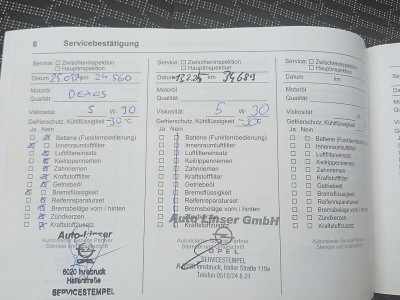 6 Servicebestätigung
Service: Zwischeninspektion
Hauptinspektion
Datum km 24 560
Motoröl
Qualität: DEXOS
Viskosität: 5 W 30
Gefrierschutz, Kühlflüssigkeit -30 °C
Ja Nein
Batterie (Funkfernbedienung)
Innenraumluftfilter
Luftfiltereinsatz
Keilrippenriemen
Zahnriemen
Kraftstofffilter
Getriebeöl
Bremsflüssigkeit
Reifenreparaturset
Bremsbeläge vorn / hinten
Zündkerzen
Kraftstoffzusatz
Auto-Linser
Autorisierter Service Partner
Stempel und Unterschrift
OPEL
6020 Innsbruck
Hallerstraße
SERVICESTEMPEL
Service: Zwischeninspektion
Hauptinspektion
Datum km 34689
Motoröl
Qualität:
Viskosität: 5 W 30
Gefrierschutz, Kühlflüssigkeit °C
Ja Nein
Batterie (Funkfernbedienung)
Innenraumluftfilter
Luftfiltereinsatz
Keilrippenriemen
Zahnriemen
Kraftstofffilter
Getriebeöl
Bremsflüssigkeit
Reifenreparaturset
Bremsbeläge vorn / hinten
Zündkerzen
Kraftstoffzusatz
Auto Linser GmbH
OPEL
Innsbruck, Haller Straße 119a
Telefon 0512/24 8 21
SERVICESTEMPEL
Service: Zwischeninspektion
Hauptinspektion
Datum km
Motoröl
Qualität:
Viskosität: W
Gefrierschutz, Kühlflüssigkeit °C
Ja Nein
Batterie (Funkfernbedienung)
Innenraumluftfilter
Luftfiltereinsatz
Keilrippenriemen
Zahnriemen
Kraftstofffilter
Getriebeöl
Bremsflüssigkeit
Reifenreparaturset
Bremsbeläge vorn / hinten
Zündkerzen
Kraftstoffzusatz
Autorisierter Service Partner
Stempel und Unterschrift